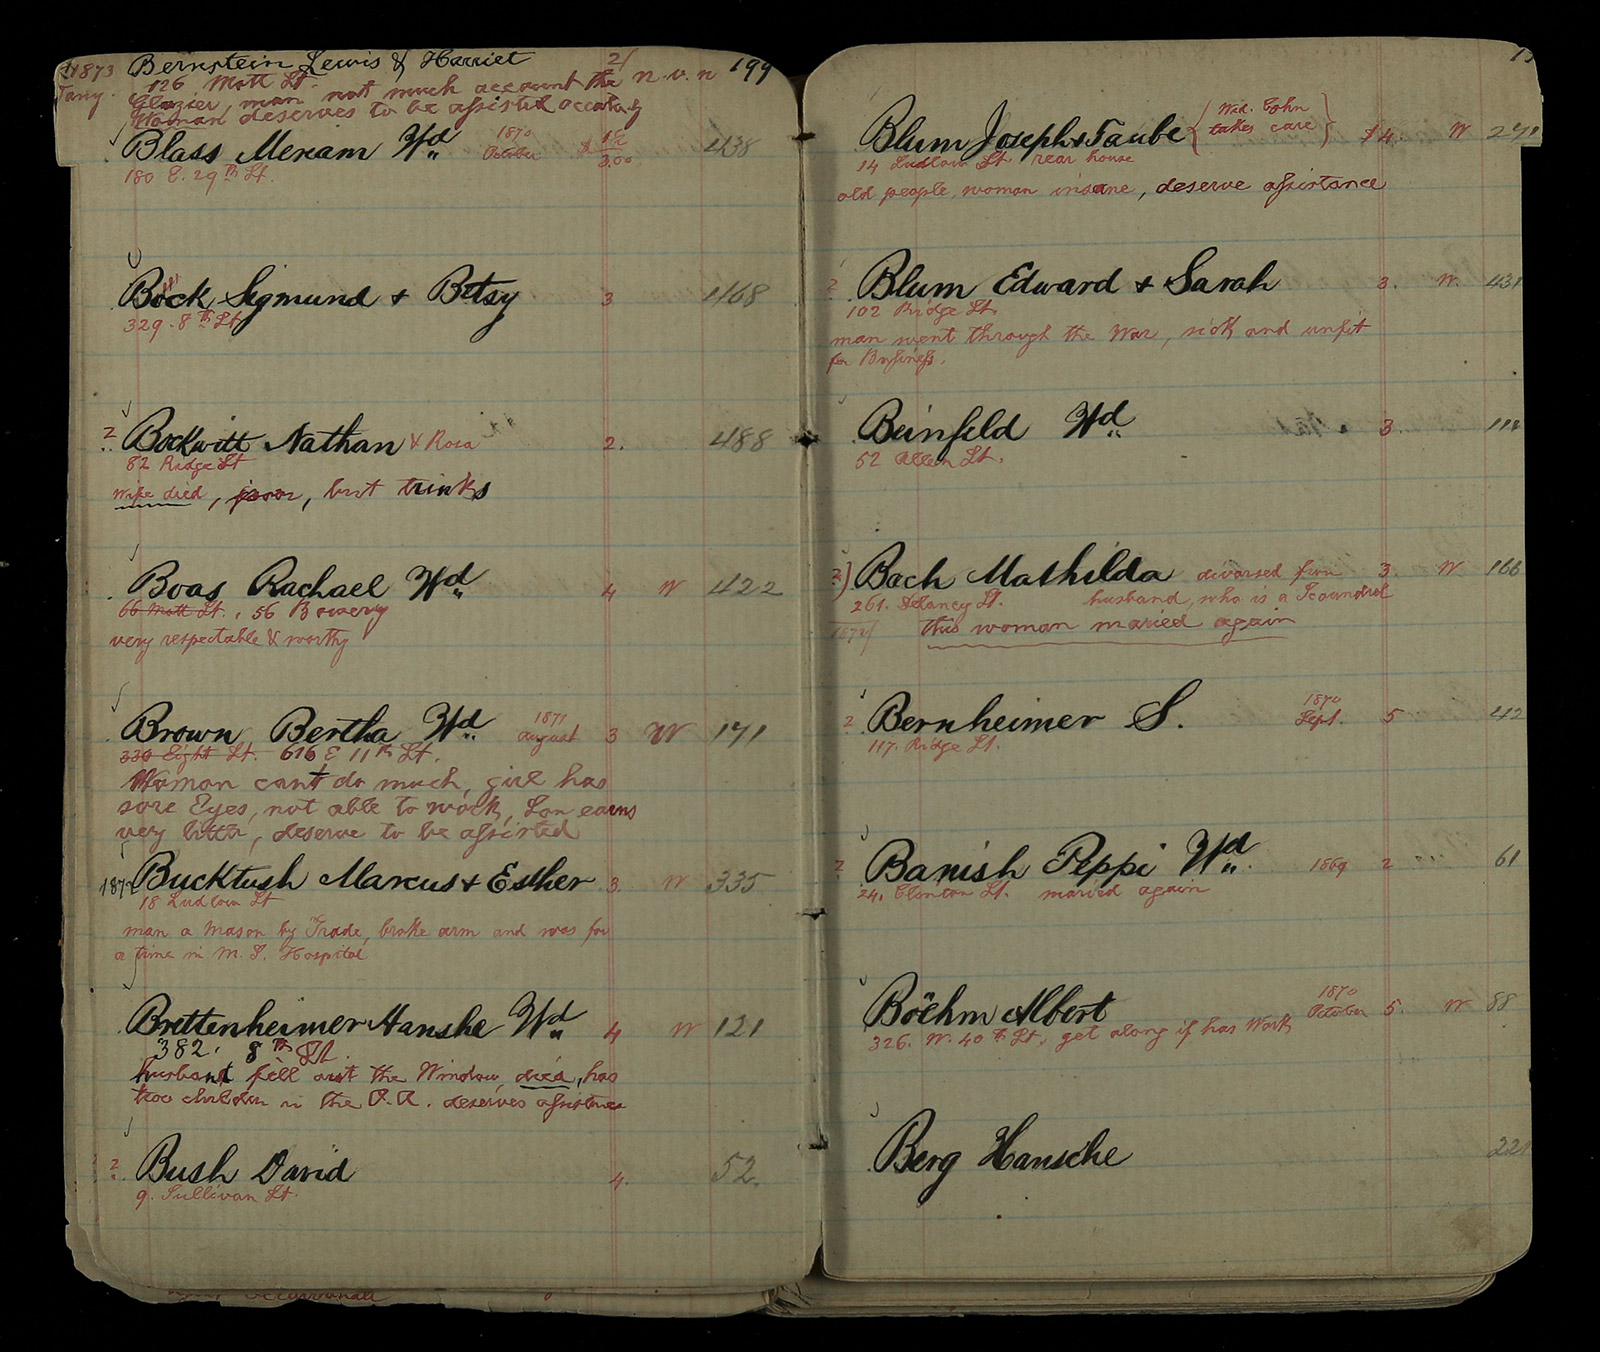 1873 Bernstein Lewis & Harriet 2/
Jany. 126 Mott St. n. v. n 199
Glazier, man not much account the
Woman deserves to be assisted
Blass Meriam Wd 1870 October $ 3.00 438
180 E. 29th St.
Bock Sigmund & Betsy 3 468
329. 8th St
2 Bockwitt Nathan & Rosa 2. 488
82 Ridge St
wife died, poor, but trinks
Boas Rachael Wd 4 W 422
66 Mott St., 56 Bowery
very respectable & worthy
Brown Bertha Wd 1871 August 3 W 171
330 Eight St. 616 E 11th St.
Woman cant do much, girl has
sore Eyes, not able to work, Son earns
very little, deserve to be assisted
1872 Bucktush Marcus & Esther 3. W 335
18 Ludlow St
man a Mason by Trade, broke arm and was for
a time in M. S. Hospital
Brettenheimer Hanshe Wd 4 W 121
382. 8th St.
husband fell out the Window, died, has
two children in the O.A. deserves assistance
2 Bush David 4. 52.
9. Sullivan St.
Blum Joseph & Taube { Wid. Cohn takes care } $4. W
14 Ludlow St rear house
old people, woman insane, deserve assistance
2 Blum Edward & Sarah 3. W. 431
102 Ridge St.
man went through the War, sick and unfit
for Business.
Beinfeld Wd 3.
52 Allen St.
2) Bach Mathilda divorsed from 3. W 166
261. Delancy St. husband, who is a Scoundrel
1872/ this woman maried again
2 Bernheimer S. 1870 Sept. 5 42
117. Ridge St.
2 Banish Peppi Wd 1869 2 61
24. Clinton St. maried again
Böehm Albert 1870 October 5. W 88
326. W. 40th St, get along if has Work
Berg Hansche 221